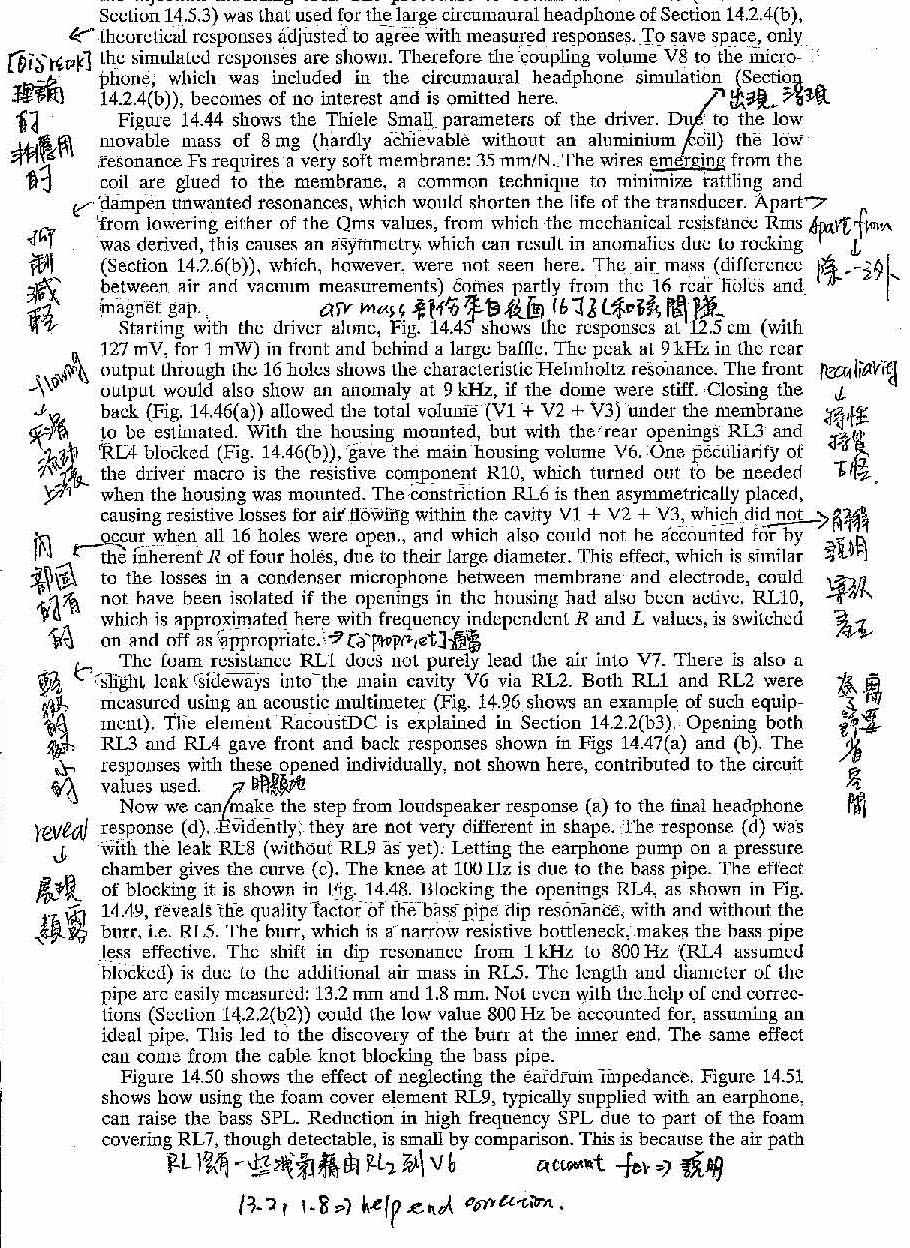 Section 14.5.3) was that used for the large circumaural headphone of Section 14.2.4(b),
theoretical responses adjusted to agree with measured responses. To save space, only
the simulated responses are shown. Therefore the coupling volume V8 to the micro-
phone, which was included in the circumaural headphone simulation (Section
14.2.4(b)), becomes of no interest and is omitted here.
出現
理論
的
應用
的
Figure 14.44 shows the Thiele Small parameters of the driver. Due to the low
movable mass of 8 mg (hardly achievable without an aluminium coil) the low
resonance Fs requires a very soft membrane: 35 mm/N. The wires emerging from the
coil are glued to the membrane, a common technique to minimize rattling and
dampen unwanted resonances, which would shorten the life of the transducer. Apart
from lowering either of the Qms values, from which the mechanical resistance Rms
was derived, this causes an asymmetry which can result in anomalies due to rocking
(Section 14.2.6(b)), which, however, were not seen here. The air mass (difference
between air and vacuum measurements) comes partly from the 16 rear holes and
magnet gap.
air mass 部份來自後面16個孔和磁間隙
抑
制
減
輕
Apart from
除…之外
Starting with the driver alone, Fig. 14.45 shows the responses at 12.5 cm (with
127 mV, for 1 mW) in front and behind a large baffle. The peak at 9 kHz in the rear
output through the 16 holes shows the characteristic Helmholtz resonance. The front
output would also show an anomaly at 9 kHz, if the dome were stiff. Closing the
back (Fig. 14.46(a)) allowed the total volume (V1 + V2 + V3) under the membrane
to be estimated. With the housing mounted, but with the rear openings RL3 and
RL4 blocked (Fig. 14.46(b)), gave the main housing volume V6. One peculiarity of
the driver macro is the resistive component R10, which turned out to be needed
when the housing was mounted. The constriction RL6 is then asymmetrically placed,
causing resistive losses for air flowing within the cavity V1 + V2 + V3, which did not
occur when all 16 holes were open., and which also could not be accounted for by
the inherent R of four holes, due to their large diameter. This effect, which is similar
to the losses in a condenser microphone between membrane and electrode, could
not have been isolated if the openings in the housing had also been active. RL10,
which is approximated here with frequency independent R and L values, is switched
on and off as appropriate.
適當
flowing
流動
上漲
peculiarity
特性
特質
解釋
說明
內
部
的
固
有
的
The foam resistance RL1 does not purely lead the air into V7. There is also a
slight leak sideways into the main cavity V6 via RL2. Both RL1 and RL2 were
measured using an acoustic multimeter (Fig. 14.96 shows an example of such equip-
ment). The element RacoustDC is explained in Section 14.2.2(b3). Opening both
RL3 and RL4 gave front and back responses shown in Figs 14.47(a) and (b). The
responses with these opened individually, not shown here, contributed to the circuit
values used.
明顯地
輕
微
的
微
小
的
需要
省
空
間
Now we can make the step from loudspeaker response (a) to the final headphone
response (d). Evidently, they are not very different in shape. The response (d) was
with the leak RL8 (without RL9 as yet). Letting the earphone pump on a pressure
chamber gives the curve (c). The knee at 100 Hz is due to the bass pipe. The effect
of blocking it is shown in Fig. 14.48. Blocking the openings RL4, as shown in Fig.
14.49, reveals the quality factor of the bass pipe dip resonance, with and without the
burr, i.e. RL5. The burr, which is a narrow resistive bottleneck, makes the bass pipe
less effective. The shift in dip resonance from 1 kHz to 800 Hz (RL4 assumed
blocked) is due to the additional air mass in RL5. The length and diameter of the
pipe are easily measured: 13.2 mm and 1.8 mm. Not even with the help of end correc-
tions (Section 14.2.2(b2) could the low value 800 Hz be accounted for, assuming an
ideal pipe. This led to the discovery of the burr at the inner end. The same effect
can come from the cable knot blocking the bass pipe.
reveal
展現
顯露
Figure 14.50 shows the effect of neglecting the eardrum impedance. Figure 14.51
shows how using the foam cover element RL9, typically supplied with an earphone,
can raise the bass SPL. Reduction in high frequency SPL due to part of the foam
covering RL7, though detectable, is small by comparison. This is because the air path
RL1 一些 藉由RL2到V6
account for ⇒ 說明
13.2, 1.8 ⇒ help end correction.